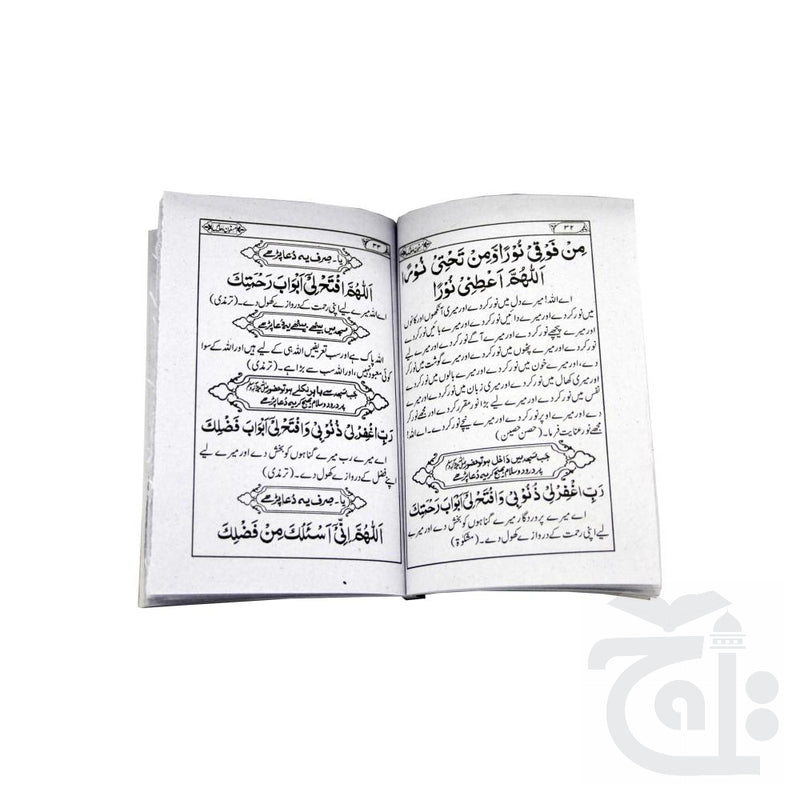 ۳۲
مِنْ فَوْقِیْ نُوْرًا وَّمِنْ تَحْتِیْ نُوْرًا
اَللّٰهُمَّ اَعْطِنِیْ نُوْرًا
اے اللہ! میرے دل میں نور کر دے اور میری آنکھوں اور کانوں
میں نور کر دے اور میرے دائیں نور کر دے اور میرے بائیں نور کر دے
اور میرے پیچھے نور کر دے اور میرے آگے نور کر دے اور میرے لیے
نور کر دے اور میرے پٹھوں میں نور کر دے اور میرے گوشت میں نور کر
دے، اور میرے خون میں نور کر دے اور میرے بالوں میں نور کر دے
اور میری کھال میں نور کر دے اور میری زبان میں نور کر دے اور میرے
نفس میں نور کر دے اور میرے لیے بڑا نور مقرر کر دے اور مجھے نور کر
دے اور میرے اوپر نور کر دے اور میرے نیچے نور کر دے۔ اے اللہ!
مجھے نور عنایت فرما۔ (حصن حصین)
جب مسجد میں داخل ہو تو حضور ﷺ
پر درود و سلام بھیج کر یہ دُعا پڑھے
رَبِّ اغْفِرْ لِیْ ذُنُوْبِیْ وَافْتَحْ لِیْ اَبْوَابَ رَحْمَتِكَ
اے میرے پروردگار میرے گناہوں کو بخش دے اور میرے
لیے اپنی رحمت کے دروازے کھول دے۔ (مشکوٰۃ)
۳۳
یا۔ صرف یہ دُعا پڑھے
اَللّٰهُمَّ افْتَحْ لِیْ اَبْوَابَ رَحْمَتِكَ
اے اللہ میرے لیے اپنی رحمت کے دروازے کھول دے۔ (ترمذی)
مسجد میں بیٹھے بیٹھے یہ دُعا پڑھے
اللہ پاک ہے اور سب تعریفیں اللہ ہی کے لیے ہیں اور اللہ کے سوا
کوئی معبود نہیں، اور اللہ سب سے بڑا ہے۔ (ترمذی)
جب مسجد سے باہر نکلے تو حضور ﷺ
پر درود و سلام بھیج کر یہ دُعا پڑھے
رَبِّ اغْفِرْ لِیْ ذُنُوْبِیْ وَافْتَحْ لِیْ اَبْوَابَ فَضْلِكَ
اے میرے رب میرے گناہوں کو بخش دے اور میرے لیے
اپنے فضل کے دروازے کھول دے۔ (ترمذی)
یا۔ صرف یہ دُعا پڑھے
اَللّٰهُمَّ اِنِّیْ اَسْئَلُكَ مِنْ فَضْلِكَ